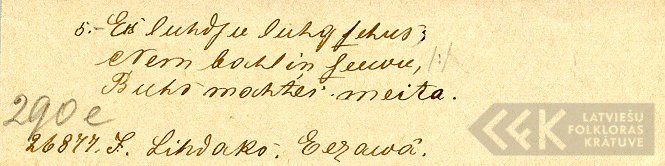 5.- Es luhdsu luhgschus,
Nem bahlin seewu, :/:
Buhs mahtei meita.
290e
26877. J. Lihdaks. Eezawā.
LATVIEŠU
FOLKLORAS
KRĀTUVE